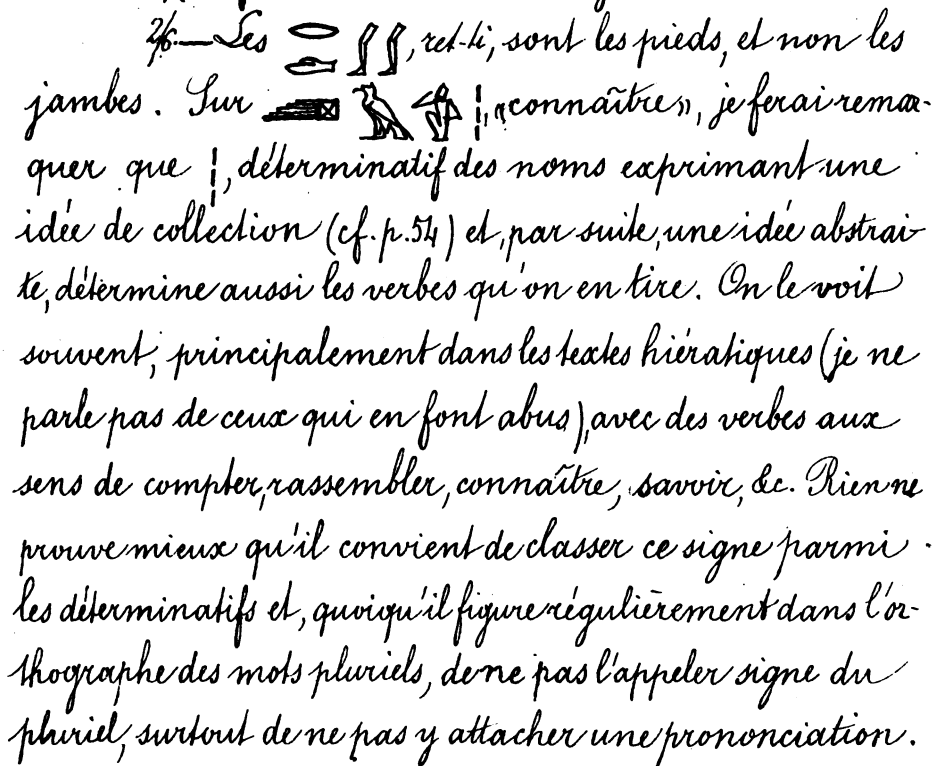 26.— Les 𓂋𓂧𓂾𓂾, ret-ti, sont les pieds, et non les
jambes. Sur 𓂋𓐍𓅂𓀁 ¦, "connaître", je ferai remar-
quer que ¦, déterminatif des noms exprimant une
idée de collection (cf. p. 54) et, par suite, une idée abstrai-
te, détermine aussi les verbes qu'on en tire. On le voit
souvent, principalement dans les textes hiératiques (je ne
parle pas de ceux qui en font abus), avec des verbes aux
sens de compter, rassembler, connaître, savoir, &c. Rien ne
prouve mieux qu'il convient de classer ce signe parmi
les déterminatifs et, quoiqu'il figure régulièrement dans l'or-
thographe des mots pluriels, de ne pas l'appeler signe du
pluriel, surtout de ne pas y attacher une prononciation.